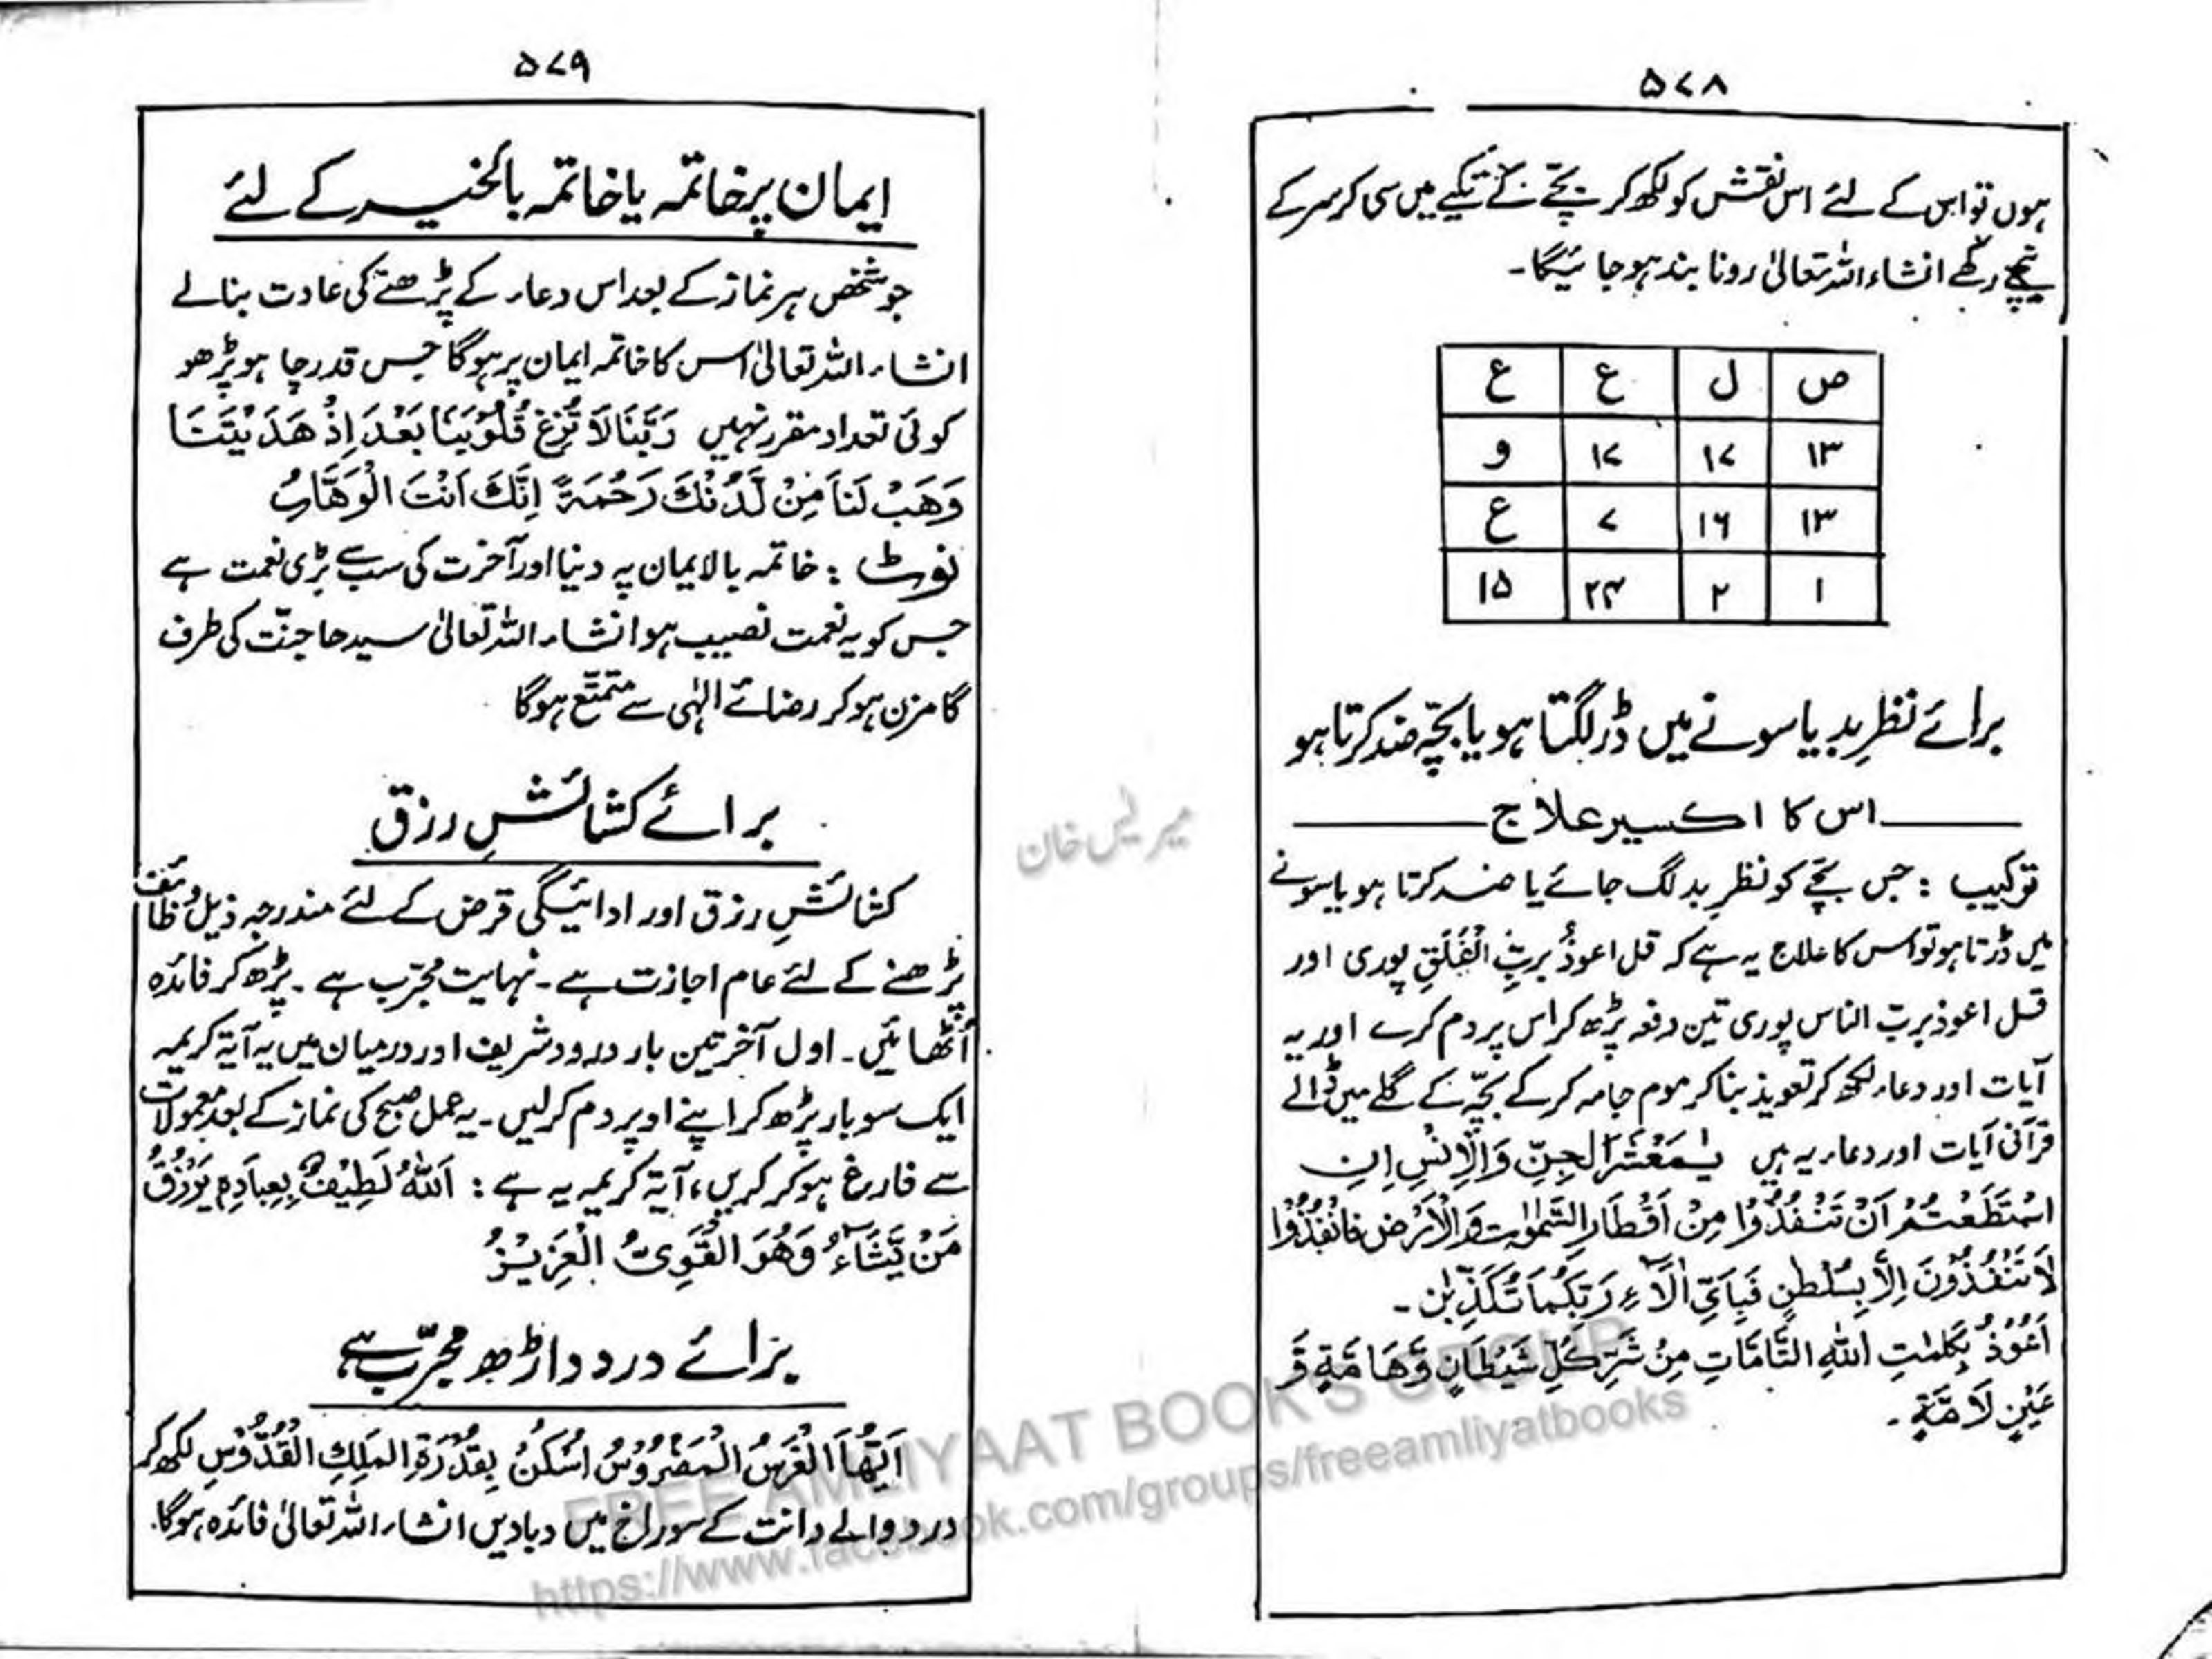 ۵۷۸
ہوں تو اس کے لئے اس نقش کو لکھ کر بچّے کے تکیے میں سی کر سر کے
نیچے رکھے انشاء اللہ تعالیٰ رونا بند ہو جائیگا۔
ص ل ع ع
۱۳ ۱۷ ۱۷ و
۱۳ ۱۶ ۷ ع
۱ ۲ ۲۴ ۱۵
برائے نظرِ بد یا سونے میں ڈر لگتا ہو یا بچّہ ضد کرتا ہو
اس کا اکسیر علاج
ترکیب : جس بچّے کو نظرِ بد لگ جائے یا ضد کرتا ہو یا سونے
میں ڈرتا ہو تو اس کا علاج یہ ہے کہ قل اعوذُ بربِّ الْفَلَقِ پوری اور
قل اعوذ بربّ الناس پوری تین دفعہ پڑھ کر اس پر دم کرے اور یہ
آیات اور دعاء لکھ کر تعویذ بنا کر موم جامہ کر کے بچّہ کے گلے میں ڈالے
قرآنی آیات اور دعاء یہ ہیں یٰمَعْشَرَ الْجِنِّ وَالْاِنْسِ اِنِ
اسْتَطَعْتُمْ اَنْ تَنْفُذُوْا مِنْ اَقْطَارِ السَّمٰوٰتِ وَالْاَرْضِ فَانْفُذُوْا
لَا تَنْفُذُوْنَ اِلَّا بِسُلْطٰنٍ فَبِاَیِّ اٰلَآءِ رَبِّکُمَا تُکَذِّبٰنِ۔
اَعُوْذُ بِکَلِمٰتِ اللہِ التَّامَّاتِ مِنْ شَرِّ کُلِّ شَیْطَانٍ وَّهَامَّةٍ وَّ
عَیْنٍ لَامَّةٍ۔
۵۷۹
ایمان پر خاتمہ یا خاتمہ بالخیر کے لئے
جو شخص ہر نماز کے بعد اس دعاء کے پڑھنے کی عادت بنا لے
انشاء اللہ تعالیٰ اس کا خاتمہ ایمان پر ہوگا جس قدر چاہو پڑھو
کوئی تعداد مقرر نہیں رَبَّنَا لَا تُزِغْ قُلُوْبَنَا بَعْدَ اِذْ هَدَیْتَنَا
وَهَبْ لَنَا مِنْ لَّدُنْكَ رَحْمَةً اِنَّكَ اَنْتَ الْوَهَّابُ
نوٹ : خاتمہ بالایمان یہ دنیا اور آخرت کی سب سے بڑی نعمت ہے
جس کو یہ نعمت نصیب ہو انشاء اللہ تعالیٰ سیدھا جنّت کی طرف
گامزن ہو کر رضائے الٰہی سے متمتّع ہوگا
برائے کشائشِ رزق
کشائشِ رزق اور ادائیگی قرض کے لئے مندرجہ ذیل وظائف
پڑھنے کے لئے عام اجازت ہے۔ نہایت مجرّب ہے۔ پڑھ کر فائدہ
اُٹھائیں۔ اول آخر تین بار درود شریف اور درمیان میں یہ آیۃ کریمہ
ایک سو بار پڑھ کر اپنے اوپر دم کرلیں۔ یہ عمل صبح کی نماز کے بعد معمولات
سے فارغ ہو کر کریں، آیۃ کریمہ یہ ہے : اَللہُ لَطِیْفٌۢ بِعِبَادِهٖ یَرْزُقُ
مَنْ یَّشَآءُ وَهُوَ الْقَوِیُّ الْعَزِیْزُ
برائے درد داڑھ مجرّب ہے
اَیُّهَا الْغَرْسُ الْمَضْرُوْسُ اسْکُنْ بِقُدْرَةِ الْمَلِكِ الْقُدُّوْسِ لکھ کر
درد والے دانت کے سوراخ میں دبادیں انشاء اللہ تعالیٰ فائدہ ہوگا۔
FREE AMLIYAAT BOOK'S GROUP
https://www.facebook.com/groups/freeamliyatbooks